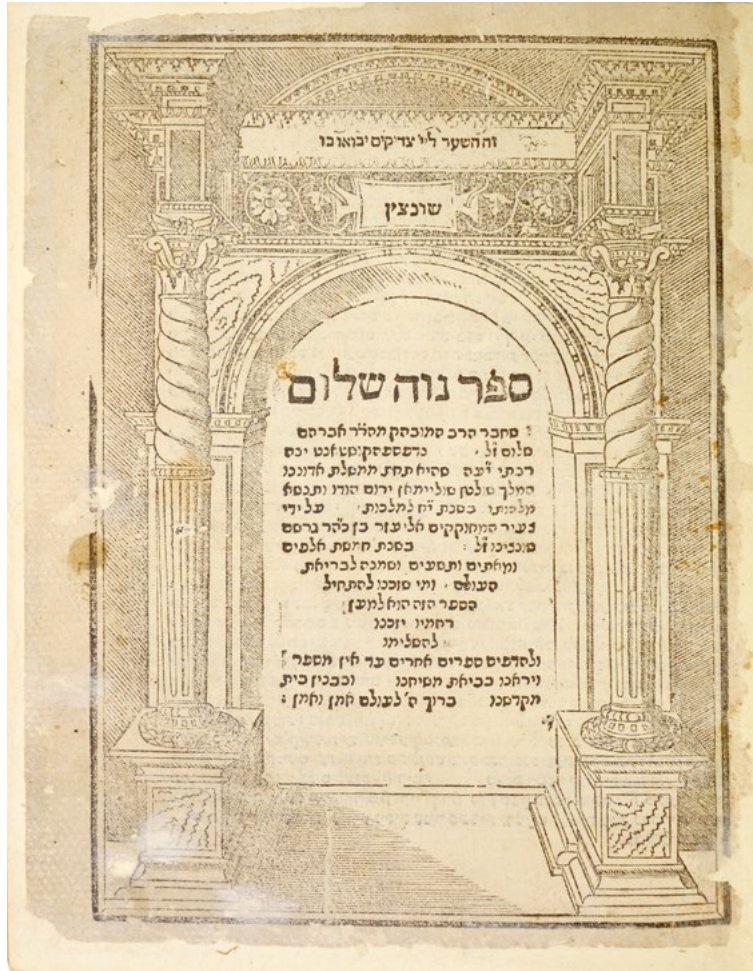 זה השער ליי צדיקים יבואו בו
שונצין
ספר נוה שלום
שחבר הרב המובהק מהר״ר אברהם
שלום ז״ל נדפס פה קושטאנט ינה
רבתי יע״ה שהיא תחת ממשלת אדוננו
המלך שולטן סולימאן ירום הודו ותנשא
מלכותו בשנת י״ח למלכותו על ידי
צעיר המחוקקים אליעזר בן כה״ר גרשם
שונצינו ז״ל בשנת חמשת אלפים
ומאתים ותשעים ושמנה לבריאת
העולם ומי שזכנו להתחיל
הספר הזה הוא למען
רחמיו יזכנו
להשלימו
ולהדפיס ספרים אחרים עד אין מספר
ויראנו בביאת משיחנו ובבנין בית
מקדשנו ברוך ה׳ לעולם אמן ואמן :